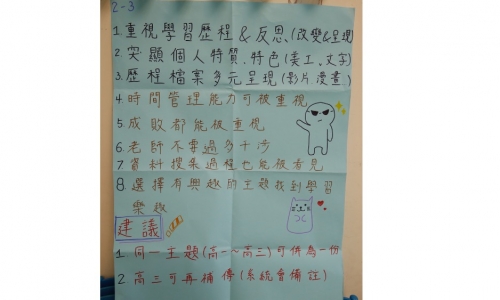 2-3
1 重視學習歷程&反思、(改變&呈現)
2. 突顯個人特質.特色(美工、文字)
3. 歷程檔案多元呈現(影片漫畫)
4 時間管理能力可被重視
5 成敗都能被重視
6 老師不要過多干涉
7 資料搜集過程也能被看見
8 選擇有興趣的主題找到學習
樂趣
建議
1. 同一主題(高一~高三)可併為一份
2. 高三可再補傳(系統會備註)